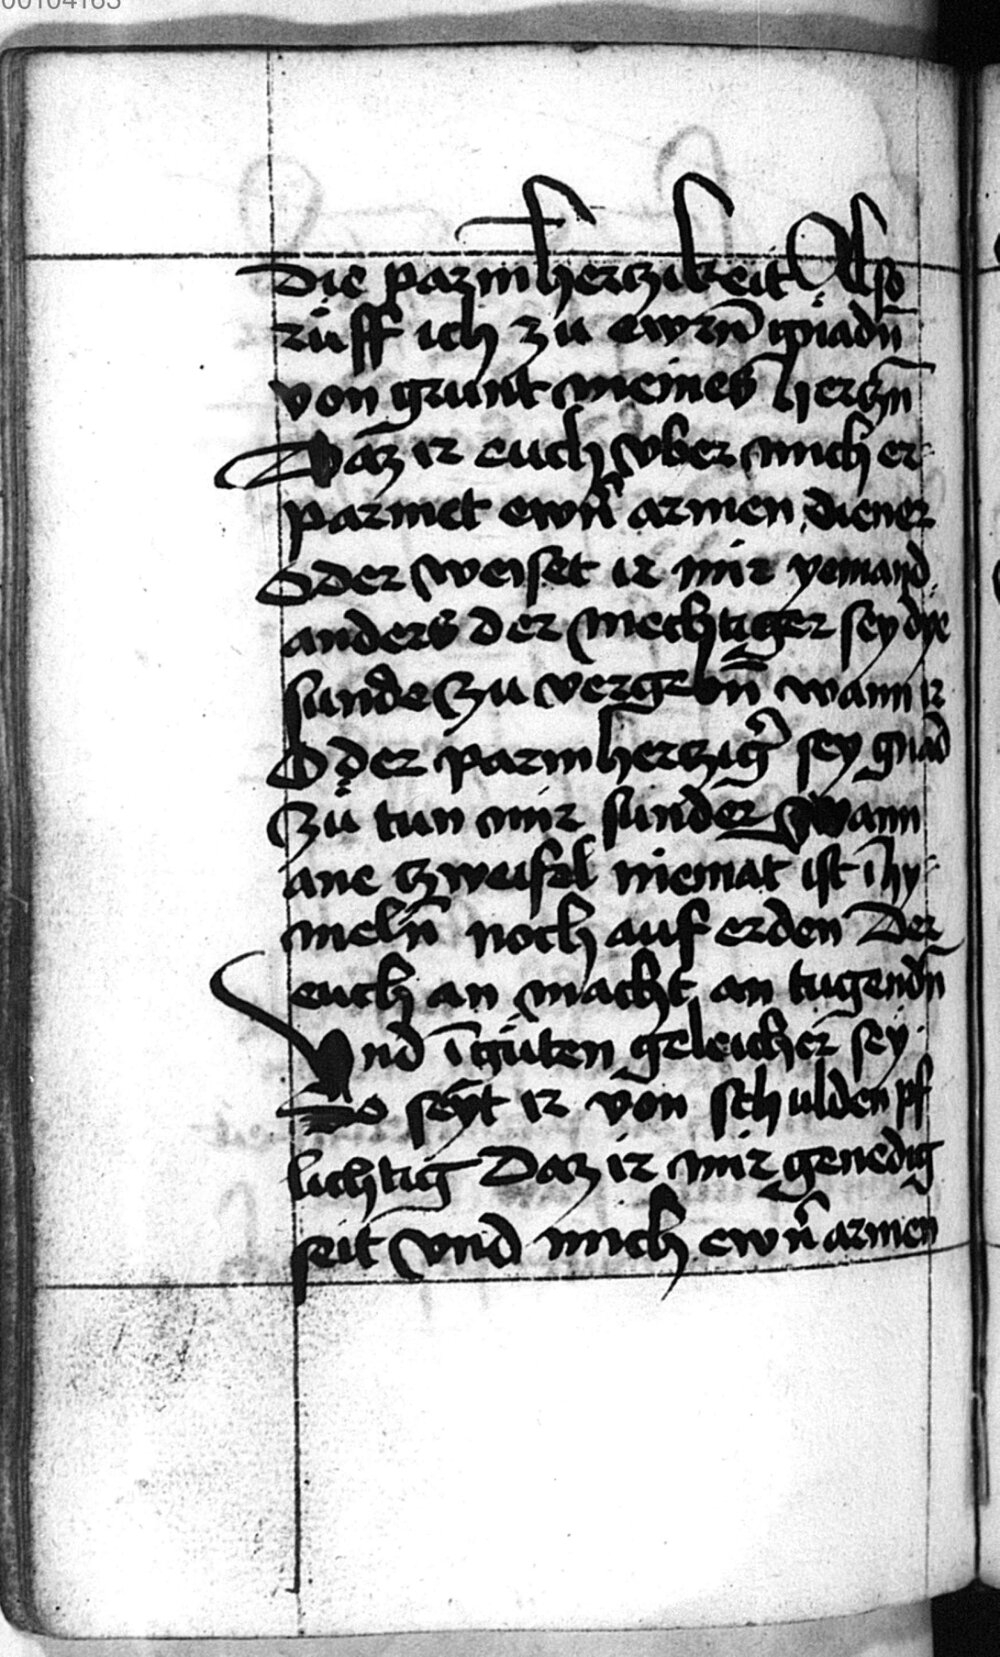 00104163
Die parmhertzikeit Also
rüff ich zu ewrn̄ gnadn̄
von grunt meines hertzn̄
Daz ir euch vber mich er
parmet ewrn̄ armen diener
Oder weiset ir mir yemand
anders der mechtiger sey dye
sunde zu vergebn̄ wann ir
Oder parmhertziḡ sey gnad
zu tun mir sunder wann
ane zweifel niemat ist ī hy
meln̄ noch auf erden Der
euch an macht an tugendn̄
Vnd ī güten geleicher sey
So seyt ir von schulden pf
lichtig Daz ir mir genedig
seit vnd mich ewrn̄ armen